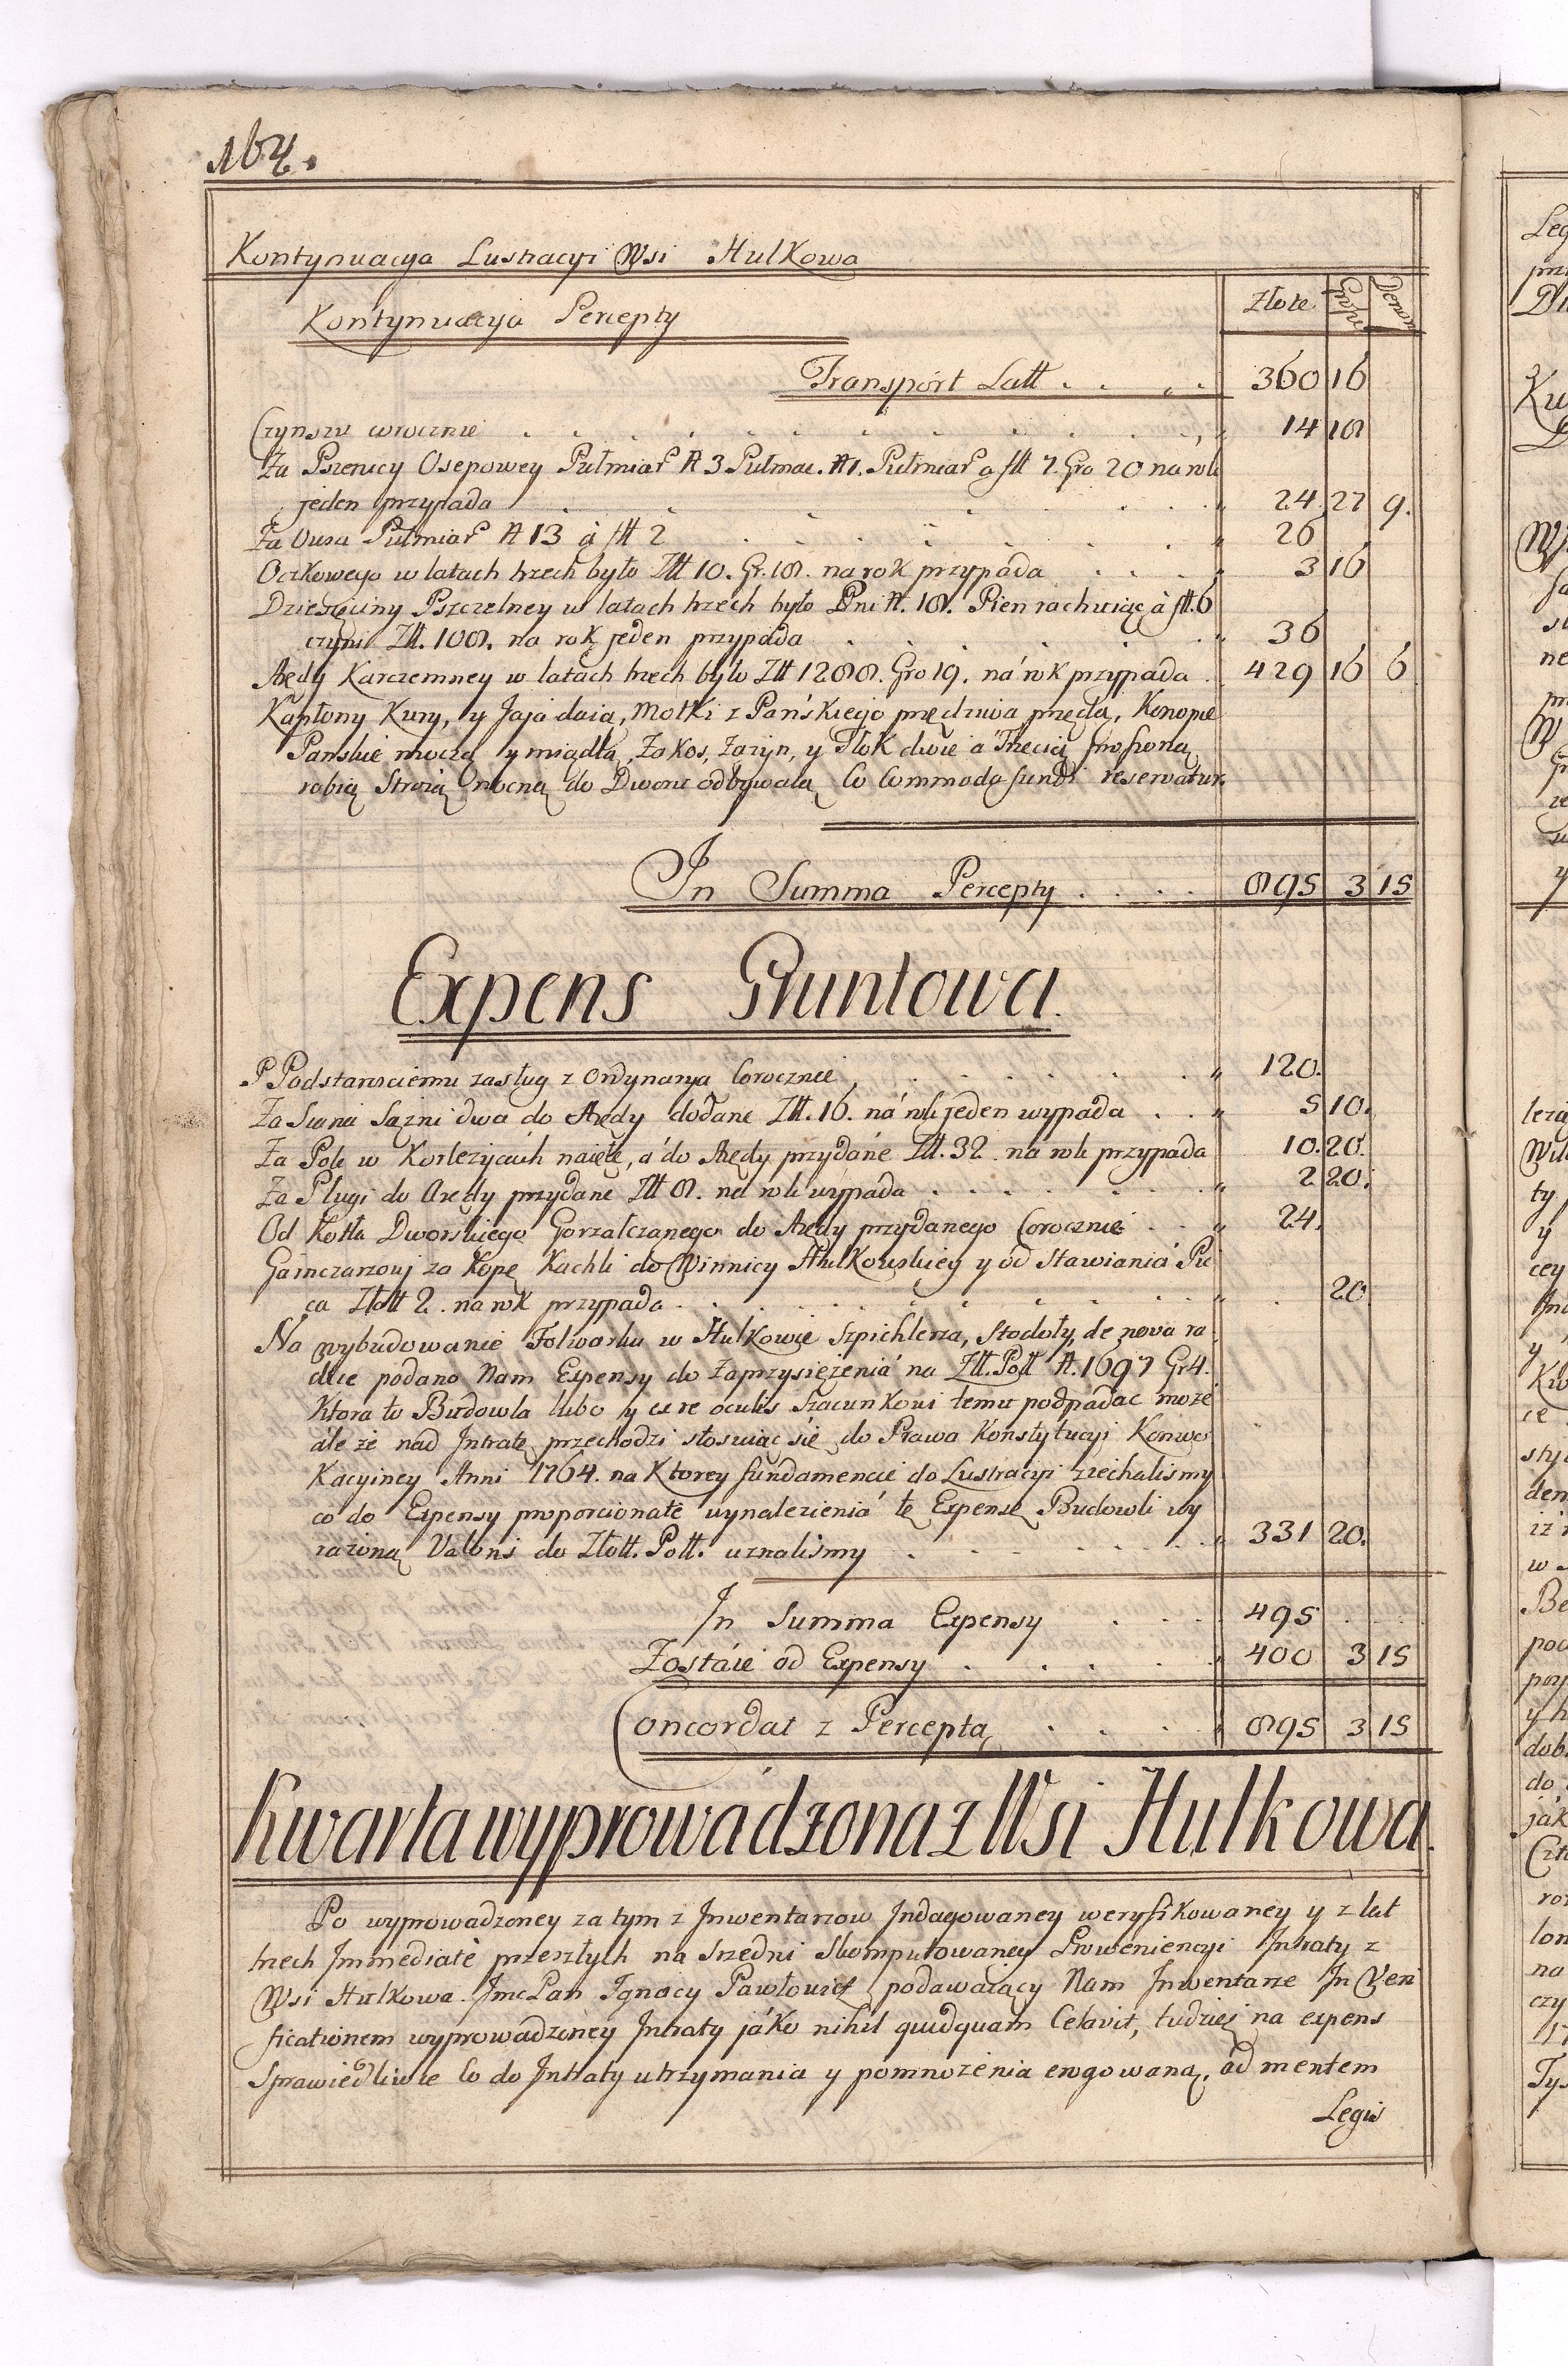 164.
Kontynuacya Lustracyi Wsi Hulkowa
Kontynuacya Percepty
Złote Grosze Denar
Transport Latt . . . . 360 16
Czynszu corocznie 14 18
Za Pszenicy Osepowey Pułmiar N 3 Pułmac. N 1. Pułmiar a fłł 7. Gro 20 na rok
jeden przypada 24 27 9.
Za Owsa Pułmiar N 13 à fłł 2 26
Oczkowego w latach trzech było Złł 10. Gr. 18. na rok przypada 3 16
Dziesięciny Pszczelney w latach trzech było Pni N. 18. Pien rachuiąc à fłł. 6
czyni Złł. 108. na rok jeden przypada 36
Arędy Karczemney w latach trzech było Złł 1288. Gro 19. na rok przypada 429 16 6
Kapłony Kury, y Jaja daią, Motki z Pańskiego przędziwa przędą, Konopie
Panskie moczą y miądlą, Zakos, Zażyn, y Tłok dwie a Trzecią proszoną
robią Stróżą nocną do Dworu odbywaią Co Commodo fundi reservatur.
In Summa Percepty . . . . 895 3 15
Expens Gruntowa.
P Podstarosciemu zasług z Ordynaryą Corocznie 120.
Za Siana Sążni dwa do Arędy dodane Złł. 16. na rok jeden wypada 5 10.
Za Pole w naięte, a do Arędy przydane Złł. 32. na rok przypada 10. 20.
Za Pługi do Arędy przydane Złł 8. na rok wypada 2 20.
Od Kotła Dworskiego Gorzałczanego do Arędy przydanego Corocznie 24.
Garnczarzowi za Kopę Kachli do Winnicy Hulkowskiey y od Stawiania Pie
ca Złłt 2. na rok przypada 20.
Na wybudowanie Folwarku w Hulkowie Szpichlerza, Stodoły de nova ra
dice podano Nam Expensy do Zaprzysiężenia na Złł. Poll N. 1697 Gr 4.
Ktora to Budowla lubo y ex re oculis szacunkowi temu podpadac może
ale że nad Intratę przechodzi stosuiąc się do Prawa Konstytucyi Konwo
Kacyiney Anni 1764. na Ktorey fundamencie do Lustracyi zjechalismy
co do Expensy proporcionate wynalezienia tę Expensę Budowli wy
rażoną Valoris do Złott. Poll. uznaliśmy 331 20.
In Summa Expensy 495
Zostaie od Expensy 400 3 15
Concordat z Perceptą 895 3 15
Kwarta wyprowadzona z Wsi Hulkowa.
Po wyprowadzoney za tym z Inwentarzow Indagowaney weryfikowaney y z lat
trzech Immediate przeszłych na Srzedni Skomputowaney Proweniencyi Intraty z
Wsi Hulkowa Jmc Pan Ignacy Pawłowicz podawaiący Nam Inwentarze In Veri
ficationem wyprowadzoney Intraty jáko nihil quidquam Celavit, tudzież na expens
Sprawiedliwie Co do Intraty utrzymania y pomnożenia erogowaną, ad mentem
Legis